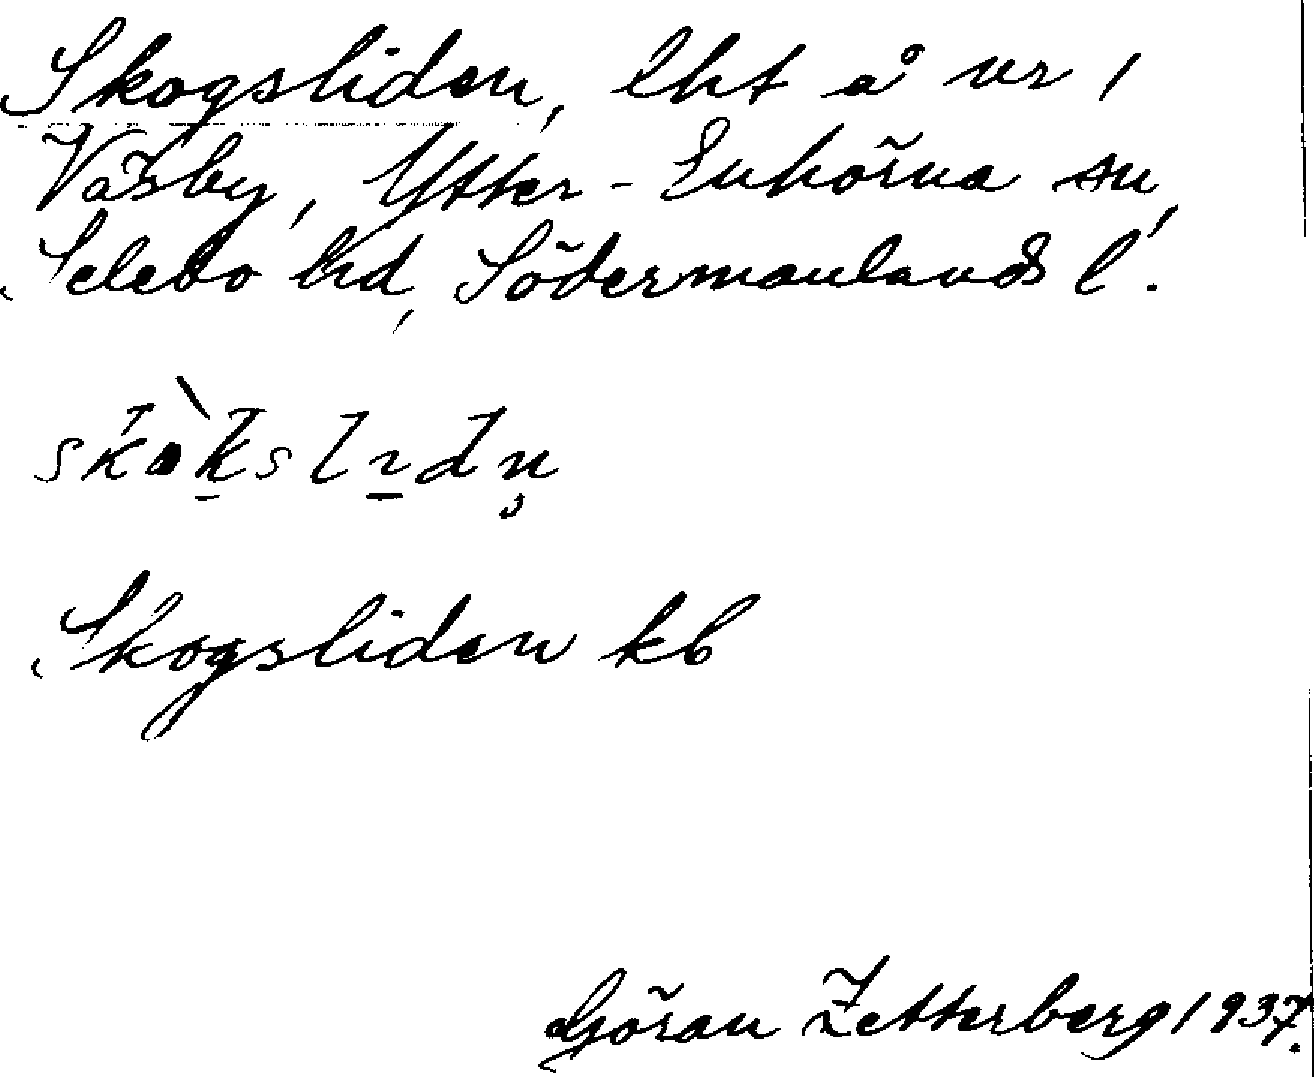 Skogsliden, lht å nr 1
Väsby, Ytter-Enhörna sn,
Selebo hd, Södermanlands l.
Skogsliden kb
Göran Zetterberg 1937.